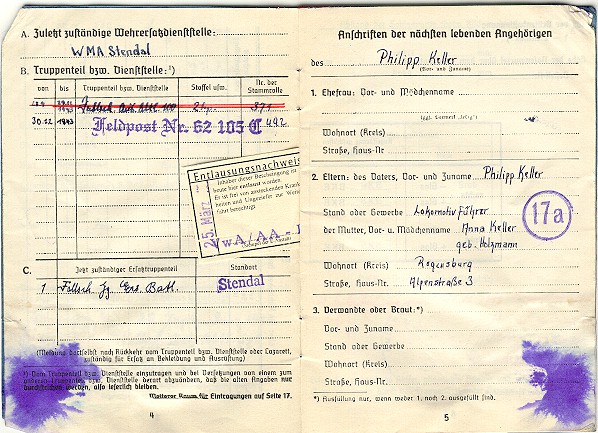 A. Zuletzt zuständige Wehrersatzdienststelle:
WMA Stendal
B. Truppenteil bzw. Dienststelle:¹)
von bis Truppenteil bzw. Dienststelle Stoffel usw. Nr. der Stammrolle
371
30.12 1943 Feldpost Nr. 62 105 C 492
Entlausungsnachweis
Inhaber dieser Bescheinigung ist
heute hier entlaust worden.
Er ist frei von ansteckenden Krank
heiten und Ungeziefer zur
fahrt berechtigt
25. März
C. Jetzt zuständiger Ersatztruppenteil Standort
1 Fallsch. Jg. Ers. Batl. Stendal
(Meldung dortselbst nach Rückkehr vom Truppenteil bzw. Dienststelle oder Lazarett,
zuständig für Ersatz an Bekleidung und Ausrüstung)
¹) Vom Truppenteil bzw. Dienststelle einzutragen und bei Versetzungen von einem zum
anderen Truppenteil bzw. Dienststelle derart abzuändern, daß die alten Angaben nur
durchstrichen werden, also leserlich bleiben.
Weiterer Raum für Eintragungen auf Seite 17.
4
Anschriften der nächsten lebenden Angehörigen
des Philipp Keller
(Vor- und Zuname)
1. Ehefrau: Vor- und Mädchenname
(ggf. Vermerk „ledig“)
Wohnort (Kreis)
Straße, Haus-Nr.
2. Eltern: des Vaters, Vor- und Zuname Philipp Keller
Stand oder Gewerbe Lokomotivführer
17a
der Mutter, Vor- u. Mädchenname Anna Keller
geb. Holzmann
Wohnort (Kreis) Regensburg
Straße, Haus-Nr. Alpenstraße 3
3. Verwandte oder Braut:*)
Vor- und Zuname
Stand oder Gewerbe
Wohnort (Kreis)
Straße, Haus-Nr.
*) Ausfüllung nur, wenn weder 1. noch 2. ausgefüllt sind.
5